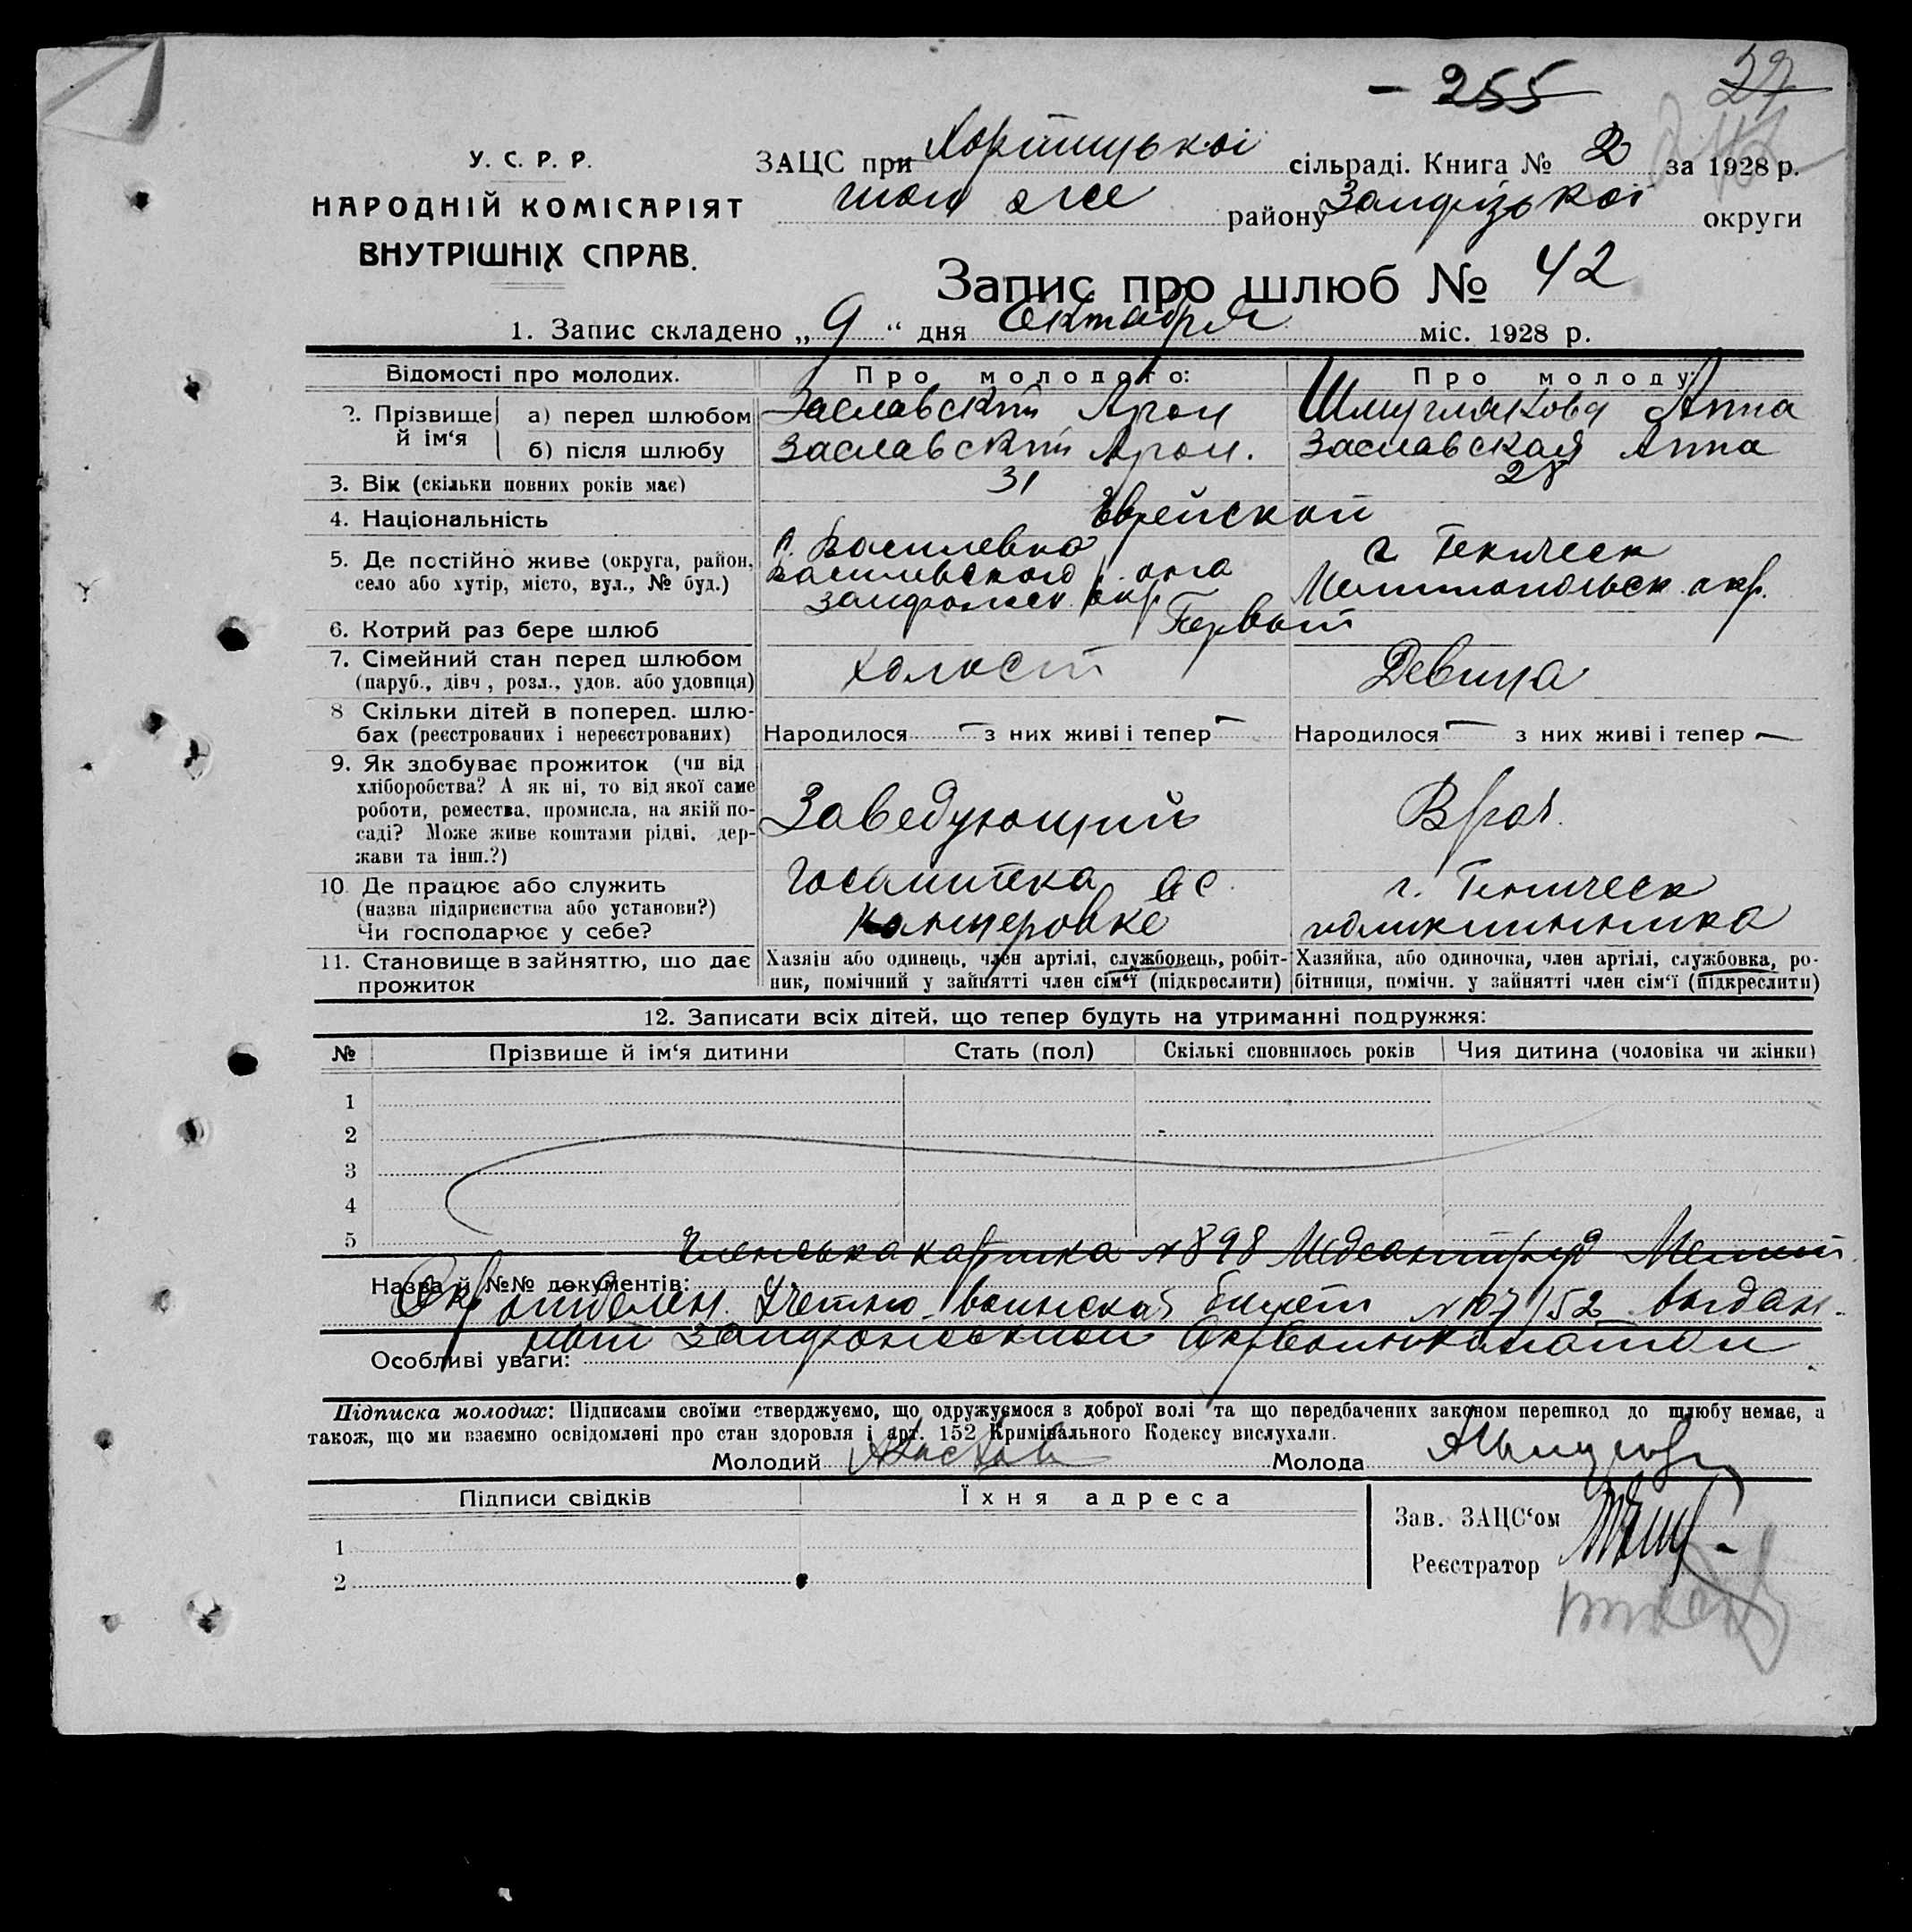 - 255 27
У. С. Р. Р.
НАРОДНІЙ КОМІСАРІЯТ
ВНУТРІШНІХ СПРАВ.
ЗАЦС при Хортицькоі сільраді. Книга № 2 за 1928 р.
того же району Запорізькоі округи
Запис про шлюб № 42
1. Запис складено „ 9 “ дня Октября міс. 1928 р.
Відомості про молодих. Про молодого: Про молоду:
2. Прізвище й ім‘я а) перед шлюбом Заславский Арон Шмуглякова Анна
б) після шлюбу Заславский Арон. Заславская Анна
3. Вік (скільки повних років має) 31 28
4. Національність Еврейской
5. Де постійно живе (округа, район, село або хутір, місто, вул., № буд.)
с. Василевка
Василевского р. она
Запорожск окр.
г. Геническ
Мелитопольск. окр.
6. Котрий раз бере шлюб Первый
7. Сімейний стан перед шлюбом холост Девица
(паруб., дівч., розл., удов. або удовиця)
8 Скільки дітей в поперед. шлю-
бах (реєстрованих і нереєстрованих) Народилося — з них живі і тепер — Народилося — з них живі і тепер —
9. Як здобуває прожиток (чи від
хліборобства? А як ні, то від якої саме
роботи, ремества, промисла, на якій по-
саді? Може живе коштами рідні, дер-
жави та інш.?)
Заведующий
Врач.
10. Де працює або служить
(назва підприємства або установи?)
Чи господарює у себе?
Госаптека в с.
Канцеровке
г. Геническ
поликлиника
11. Становище в зайняттю, що дає
прожиток
Хазяін або одинець, член артілі, службовець, робіт-
ник, помічний у зайнятті член сім‘ї (підкреслити)
Хазяйка, або одиночка, член артілі, службовка, ро-
бітниця, помічн. у зайнятті член сім‘ї (підкреслити)
12. Записати всіх дітей, що тепер будуть на утриманні подружжя:
№ Прізвище й ім‘я дитини Стать (пол) Скількі сповнилось років Чия дитина (чоловіка чи жінки)
1
2
3
4
5
Членська картка №898 Медсантруд Мелит.
Назва й №№ документів:
Окр отделен. Учетно-воинска билет №107/52 выдан-
ный Запорожской Окрвоенкоматом
Особливі уваги:
Підписка молодих: Підписами своїми стверджуємо, що одружуємося з доброї волі та що передбачених законом перешкод до шлюбу немає, а
також, що ми взаємно освідомлені про стан здоровля і арт. 152 Кримінального Кодексу вислухали.
Молодий Молода
Підписи свідків Їхня адреса
Зав. ЗАЦС‘ом
Реєстратор
1
2